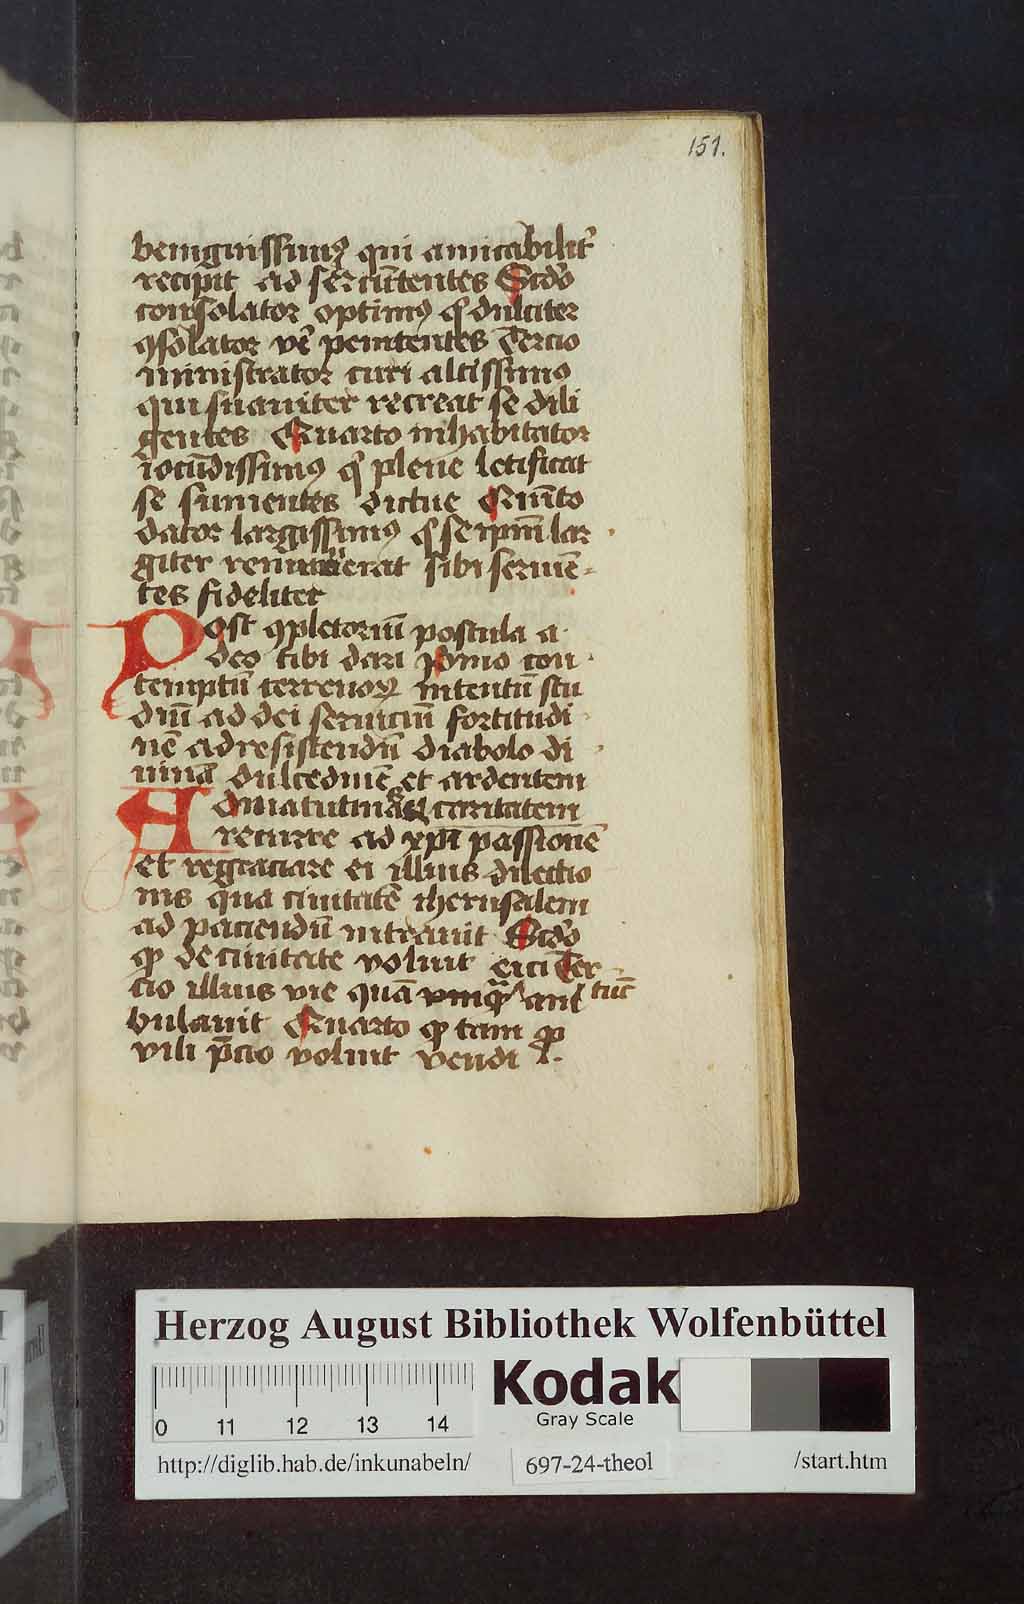 151.
benignissimꝯ qui amicabilit̉
recipit ad se reũtentes Scd̉o
consolator optimꝯ q̉ dulciter
ꝯsolator vẻ penitentes Tercio
ministrator curi altissimo
qui suauiter recreat se dili
gentes Quarto inhabitator
iocũdissimꝯ q̉ plene letificat
se sumentes dictue Quĩto
dator largissimꝯ q̉ se ip̄m lar
giter remunerat sibi seruiẽ-
tes fideliter
Post ꝯpletoriũ postula a
deo tibi dari p̉mo con
temptũ terrenoꝝ intentũ stu
diũ ad dei seruiciũ fortitudi
nẽ ad resistendũ diabolo di
uinã dulcedinẽ et ardentem
Ad matutinas caritatem
recurre ad xp̄i passionẽ
et regraciare ei illius dilectio
nis qua ciuitatẽ iherusalem
ad paciendũ intrauit Scd̉o
ꝙ de ciuitate voluit eici Ter
cio illius vie quã vnuq̃ tũc am
bulauit Quarto ꝙ tam ꝓ
vili p̄cio voluit vendi
Herzog August Bibliothek Wolfenbüttel
0 11 12 13 14
Kodak
Gray Scale
http://diglib.hab.de/inkunabeln/ 697-24-theol /start.htm